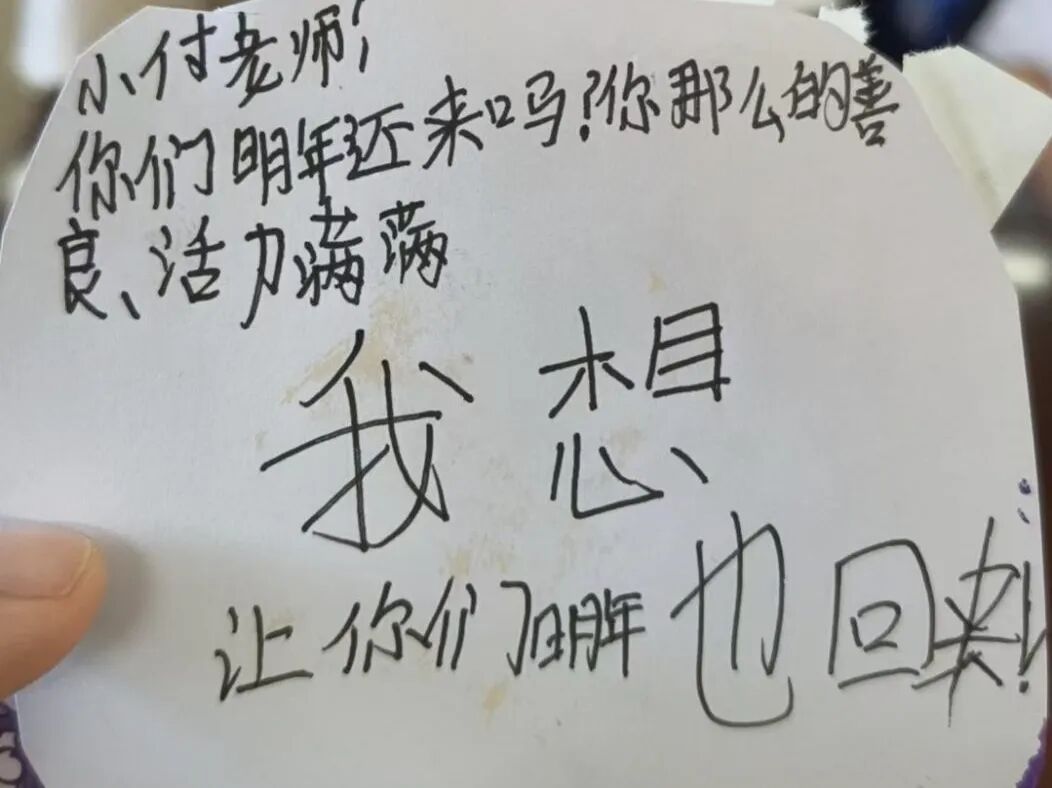 小付老师！
你们明年还来吗？你那么的善
良、活力满满
我想
让你们明年也回来！